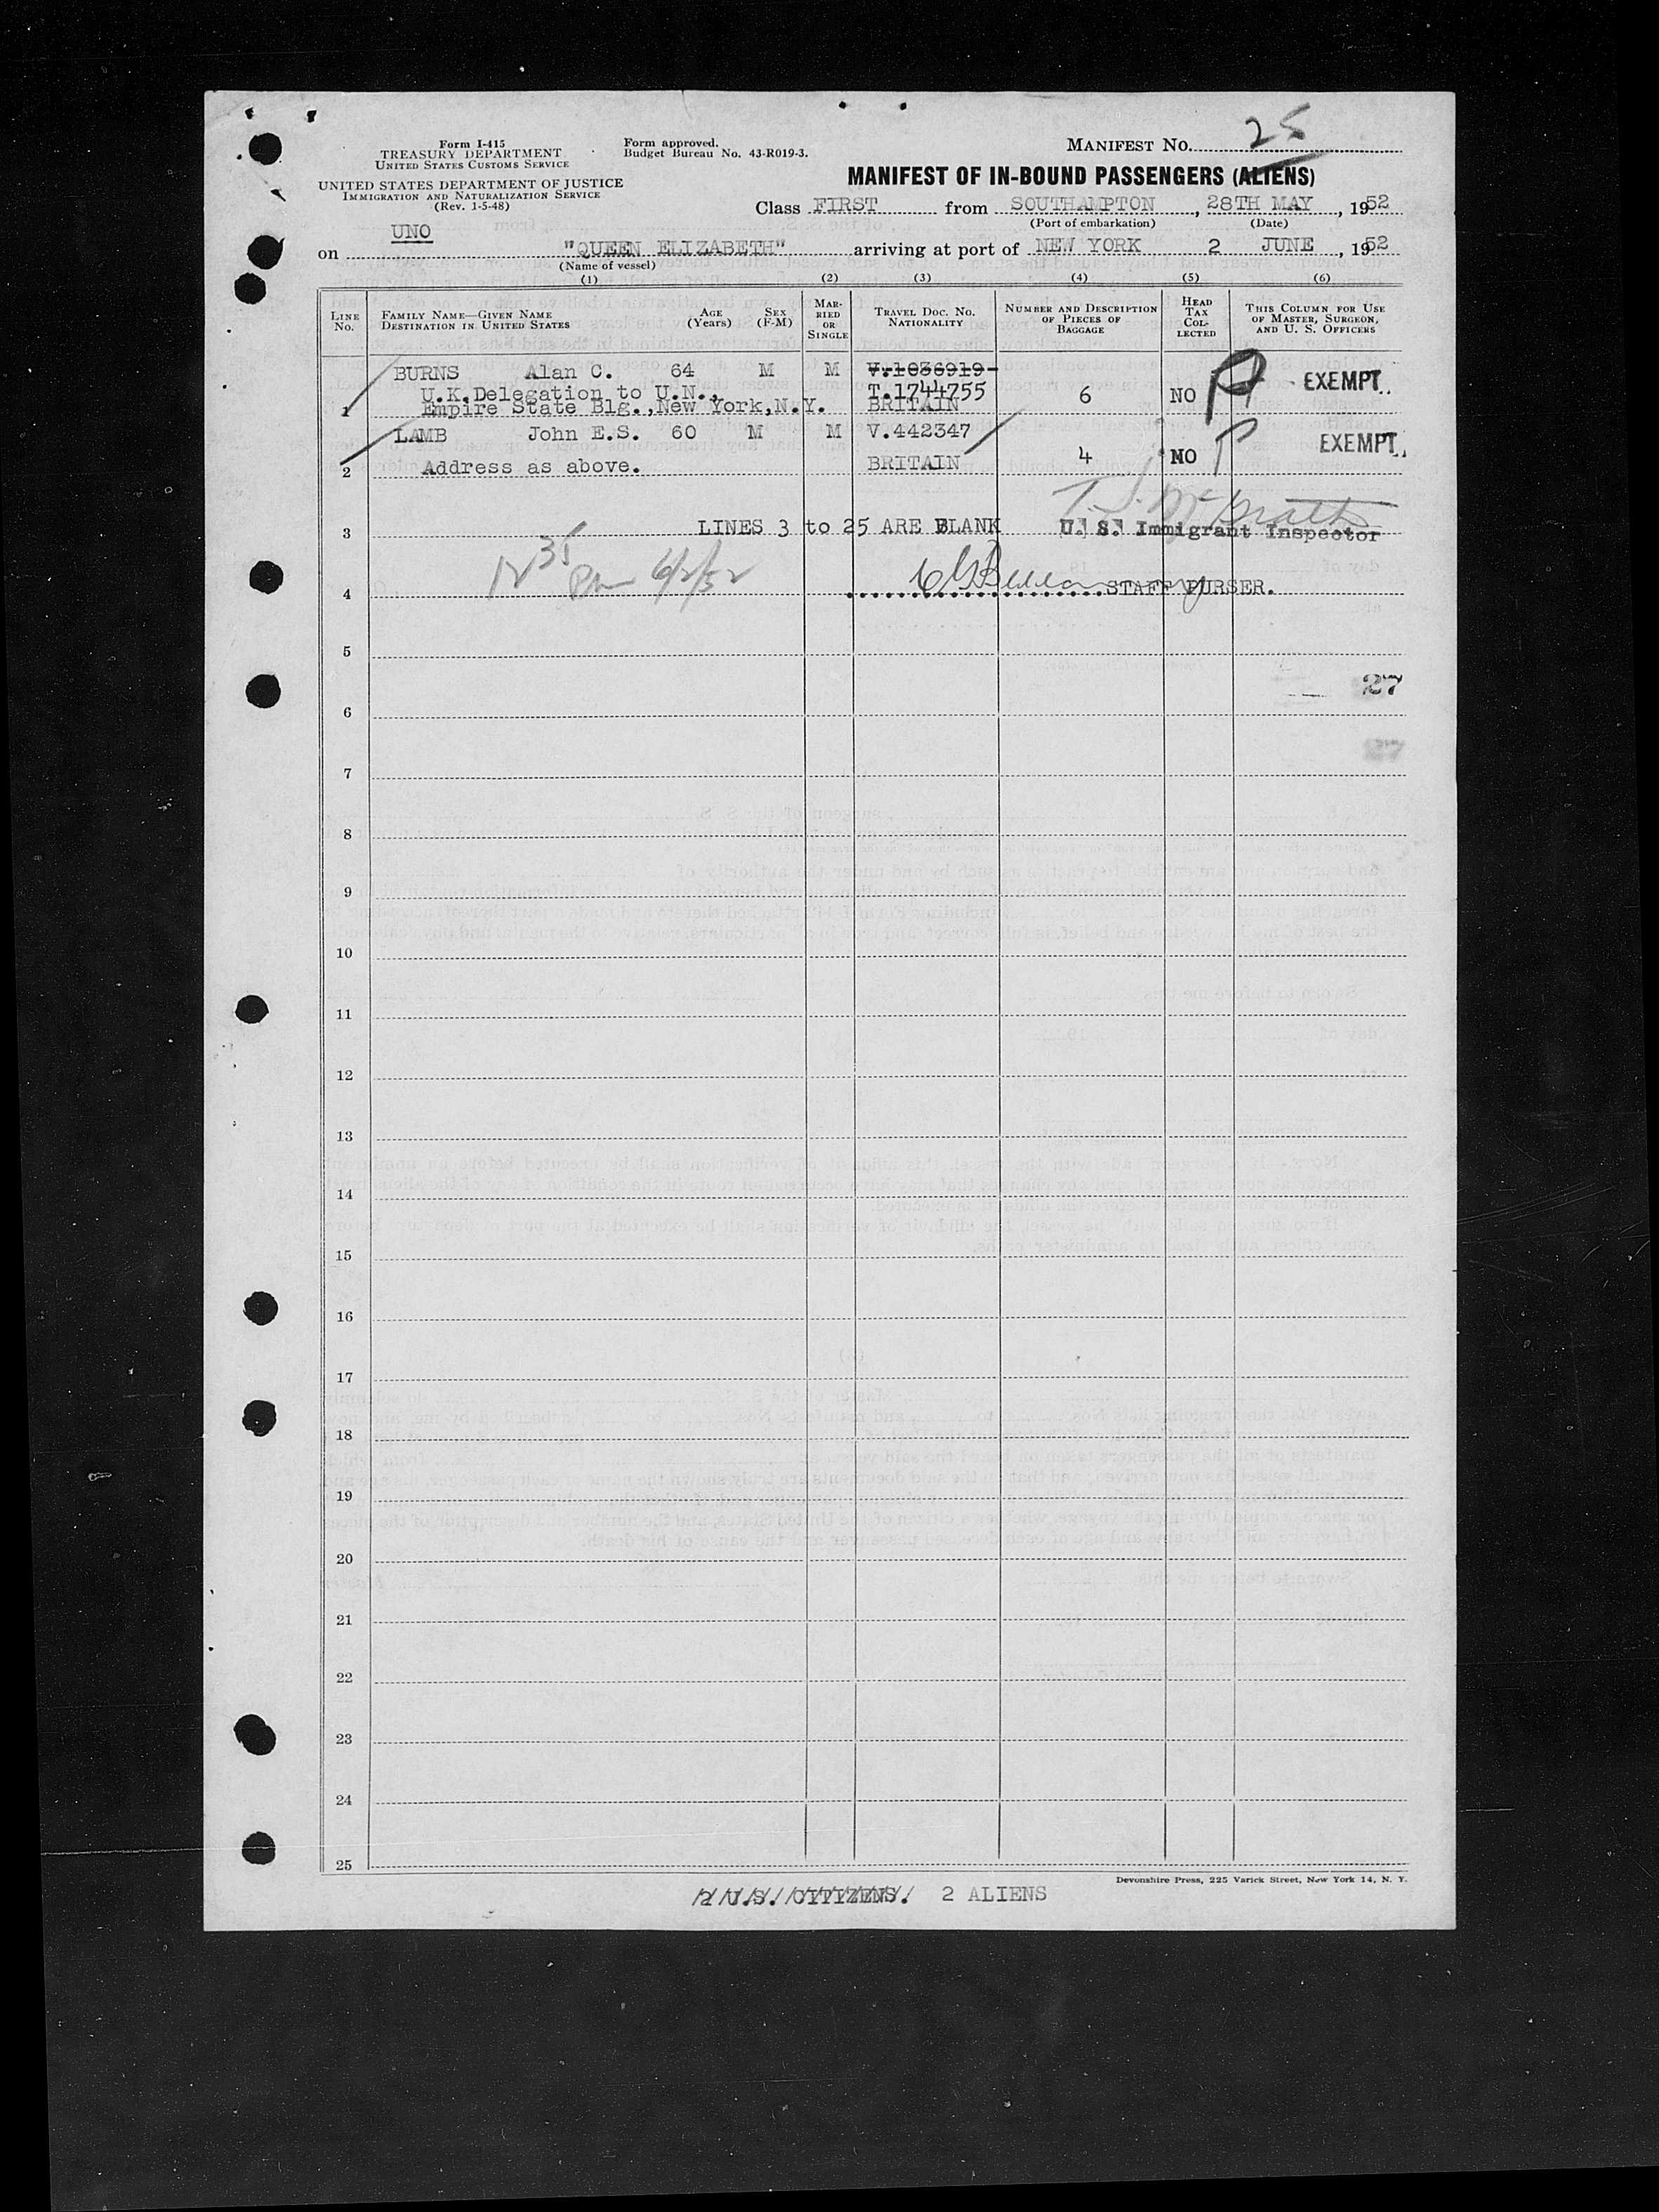 Form I-415
TREASURY DEPARTMENT
UNITED STATES CUSTOMS SERVICE
UNITED STATES DEPARTMENT OF JUSTICE
IMMIGRATION AND NATURALIZATION SERVICE
(Rev. 1-5-48)
Form approved.
Budget Bureau No. 43-R019-3.
MANIFEST No. 25
MANIFEST OF IN-BOUND PASSENGERS (ALIENS)
Class FIRST from SOUTHAMPTON, 28TH MAY, 1952
(Port of embarkation) (Date)
UNO
on "QUEEN ELIZABETH" arriving at port of NEW YORK 2 JUNE, 1952
(Name of vessel)
(1) (2) (3) (4) (5) (6)
LINE No. FAMILY NAME—GIVEN NAME DESTINATION IN UNITED STATES AGE (Years) SEX (F-M) MARRIED OR SINGLE TRAVEL DOC. NO. NATIONALITY NUMBER AND DESCRIPTION OF PIECES OF BAGGAGE HEAD TAX COLLECTED THIS COLUMN FOR USE OF MASTER, SURGEON, AND U. S. OFFICERS
BURNS Alan C. 64 M M V.1036919
U.K.Delegation to U.N., T.1744755 6 NO EXEMPT
1 Empire State Blg.,New York,N.Y. BRITAIN
LAMB John E.S. 60 M M V.442347 EXEMPT
2 Address as above. BRITAIN 4 NO
3 LINES 3 to 25 ARE BLANK U. S. Immigrant Inspector
12 35 Pm 6/2/52
4 STAFF PURSER.
5
27
6
27
7
8
9
10
11
12
13
14
15
16
17
18
19
20
21
22
23
24
25
Devonshire Press, 225 Varick Street, New York 14, N. Y.
2 U.S. CITIZENS. 2 ALIENS